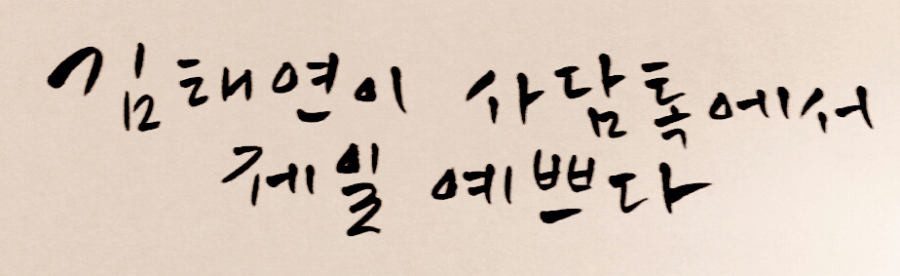 김태연이 사담톡에서
제일 예쁘다